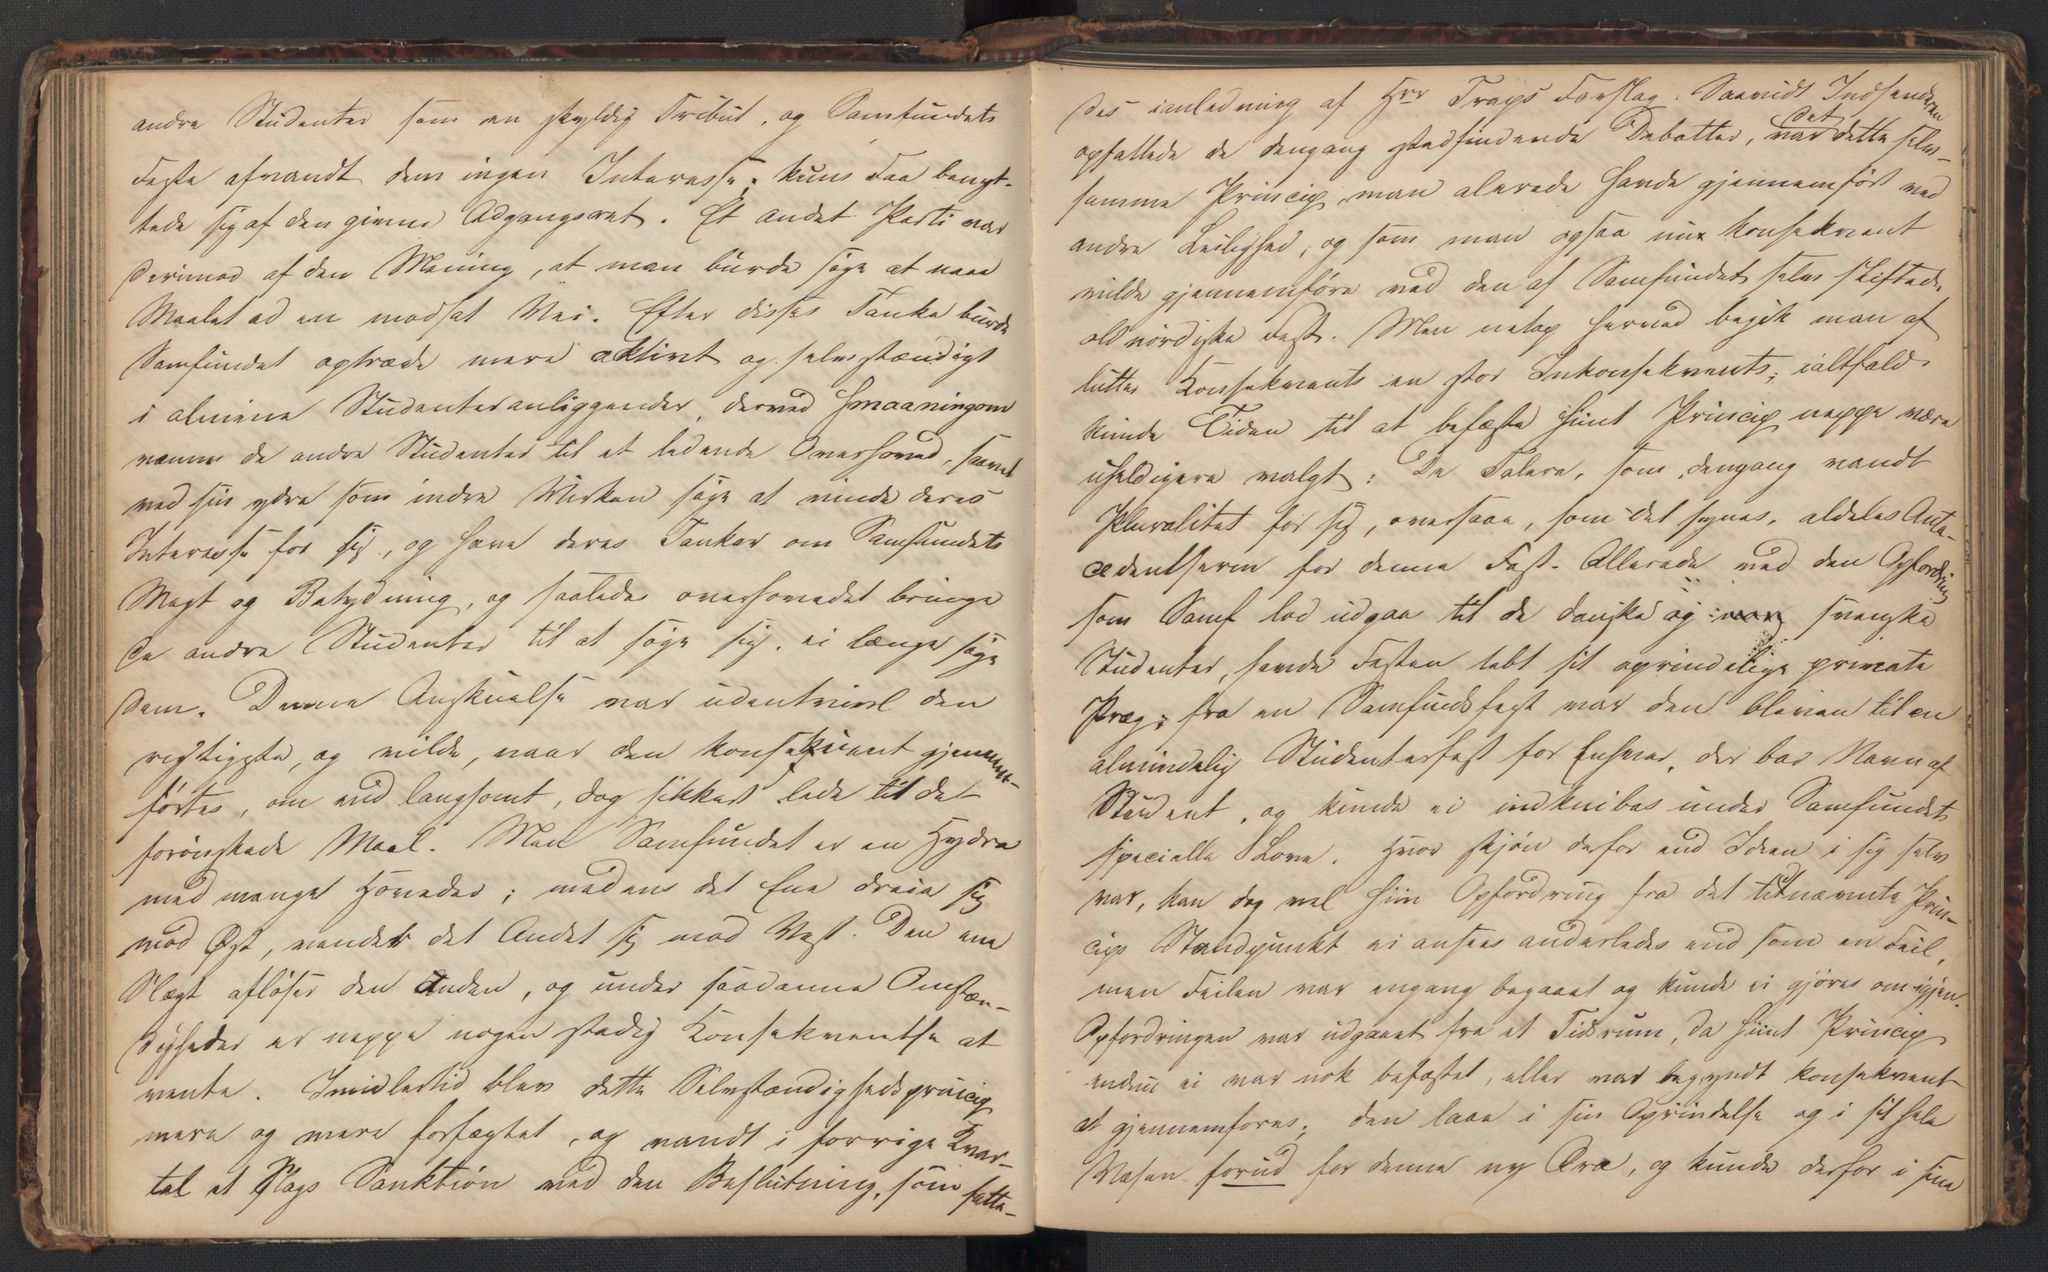 andre Studenter som en skyldig Tribut, og Samfundets
Feste afvandt dem ingen Interesse; kuns Faa benyt-
tede sig af den givne Adgangsret. Et andet Parti var
derimod af den Mening, at man burde søge at naae
Maalet ad en modsat Vei. Efter disses Tanke burde
Samfundet optræde mere aktivt og selvstændigt
i almene Studenteranliggender, derved smaaningom
vænne de andre Studenter til et ledende Overhoved, saavel
ved sin ydre som indre Virken søge at vinde deres
Interesse for sig, og hæve deres Tanker om Samfundets
Magt og Betydning, og saaledes overhovedet bringe
de andre Studenter til at søge sig, ei længe søge
dem. Denne Anskuelse var udentvivl den
rigtigste, og vilde, naar den konsekvent gjennem-
førtes, om end langsomt, dog sikkert lede til det
forønskede Maal. Men Samfundet er en Hydra
med mange Hoveder; medens det Ene dreie sig
mod Øst, vender det Andet sig mod Vest. Den ene
Slægt afløser den Anden, og under saadanne Omstæn-
digheder er neppe nogen stadig Konsekventse at
vente. Imidlertid blev dette Selvstændighedsprincip
mere og mere forfægtet, og vandt i forrige Kvar-
tal et Slags Sanktion ved den Beslutning, som fatte-
des ianledning af Hrr Traps Forslag. Saavidt Indsenderen
opfattede de dengang stedfindende Debatter, var det dette selv-
samme Princip man alerede havde gjennemført ved
andre Leilighed, og som man ogsaa nu konsekvent
vilde gjennemføre ved den af Samfundet selv stiftede
oldnordiske Fest. Men netop herved begik man af
lutter Konsekvents en stor Inkonsekvents; ialtfald
kunde Tiden til at befæste hiint Princip neppe være
uheldigere valgt: De Talere, som dengang vandt
Pluralitet for sig, oversaae, som det synes, aldeles Ante-
cedentserne for denne Fest. Allerede ved den Opfordring
som Samf lod udgaa til de danske og svenske
Studenter, havde Festen tabt sit oprindelige private
Præg; fra en Samfundsfest var den bleven til en
almindelig Studenterfest for Enhver, der bar Navn af
Student, og kunde ei indknibes under Samfundets
specielle Love. Hvor skjøn derfor end Ideen i sig selv
var, kan dog vel hiin Opfordring fra det titnævnte Prin-
cips Standpunkt ei ansees anderledes end som en Feil,
men Feilen var engang begaaet og kunde ei gjøres om igjen.
Opfordringen var udgaaet fra et Tidsrum, da hiint Princip
endnu ei var nok befæstet, eller var begyndt konsekvent
at gjennemføres; den laae i sin Oprindelse og i sit hele
Væsen forud for denne ny Æra, og kunde derfor i sine